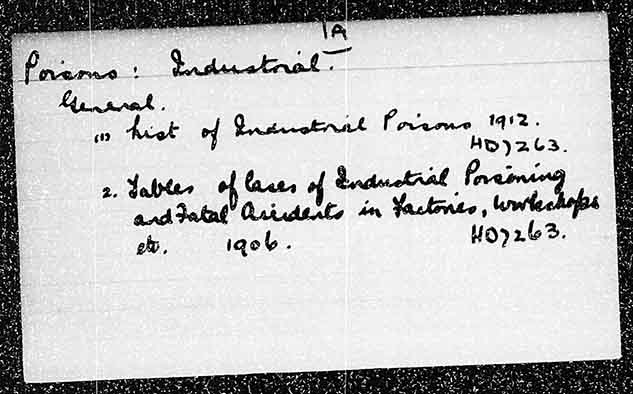 1A
Poisons: Industrial.
General.
(1) List of Industrial Poisons 1912.
HD7263.
2. Tables of Cases of Industrial Poisoning
and Fatal Accidents in Factories, Workshops
etc. 1906. HD7263.